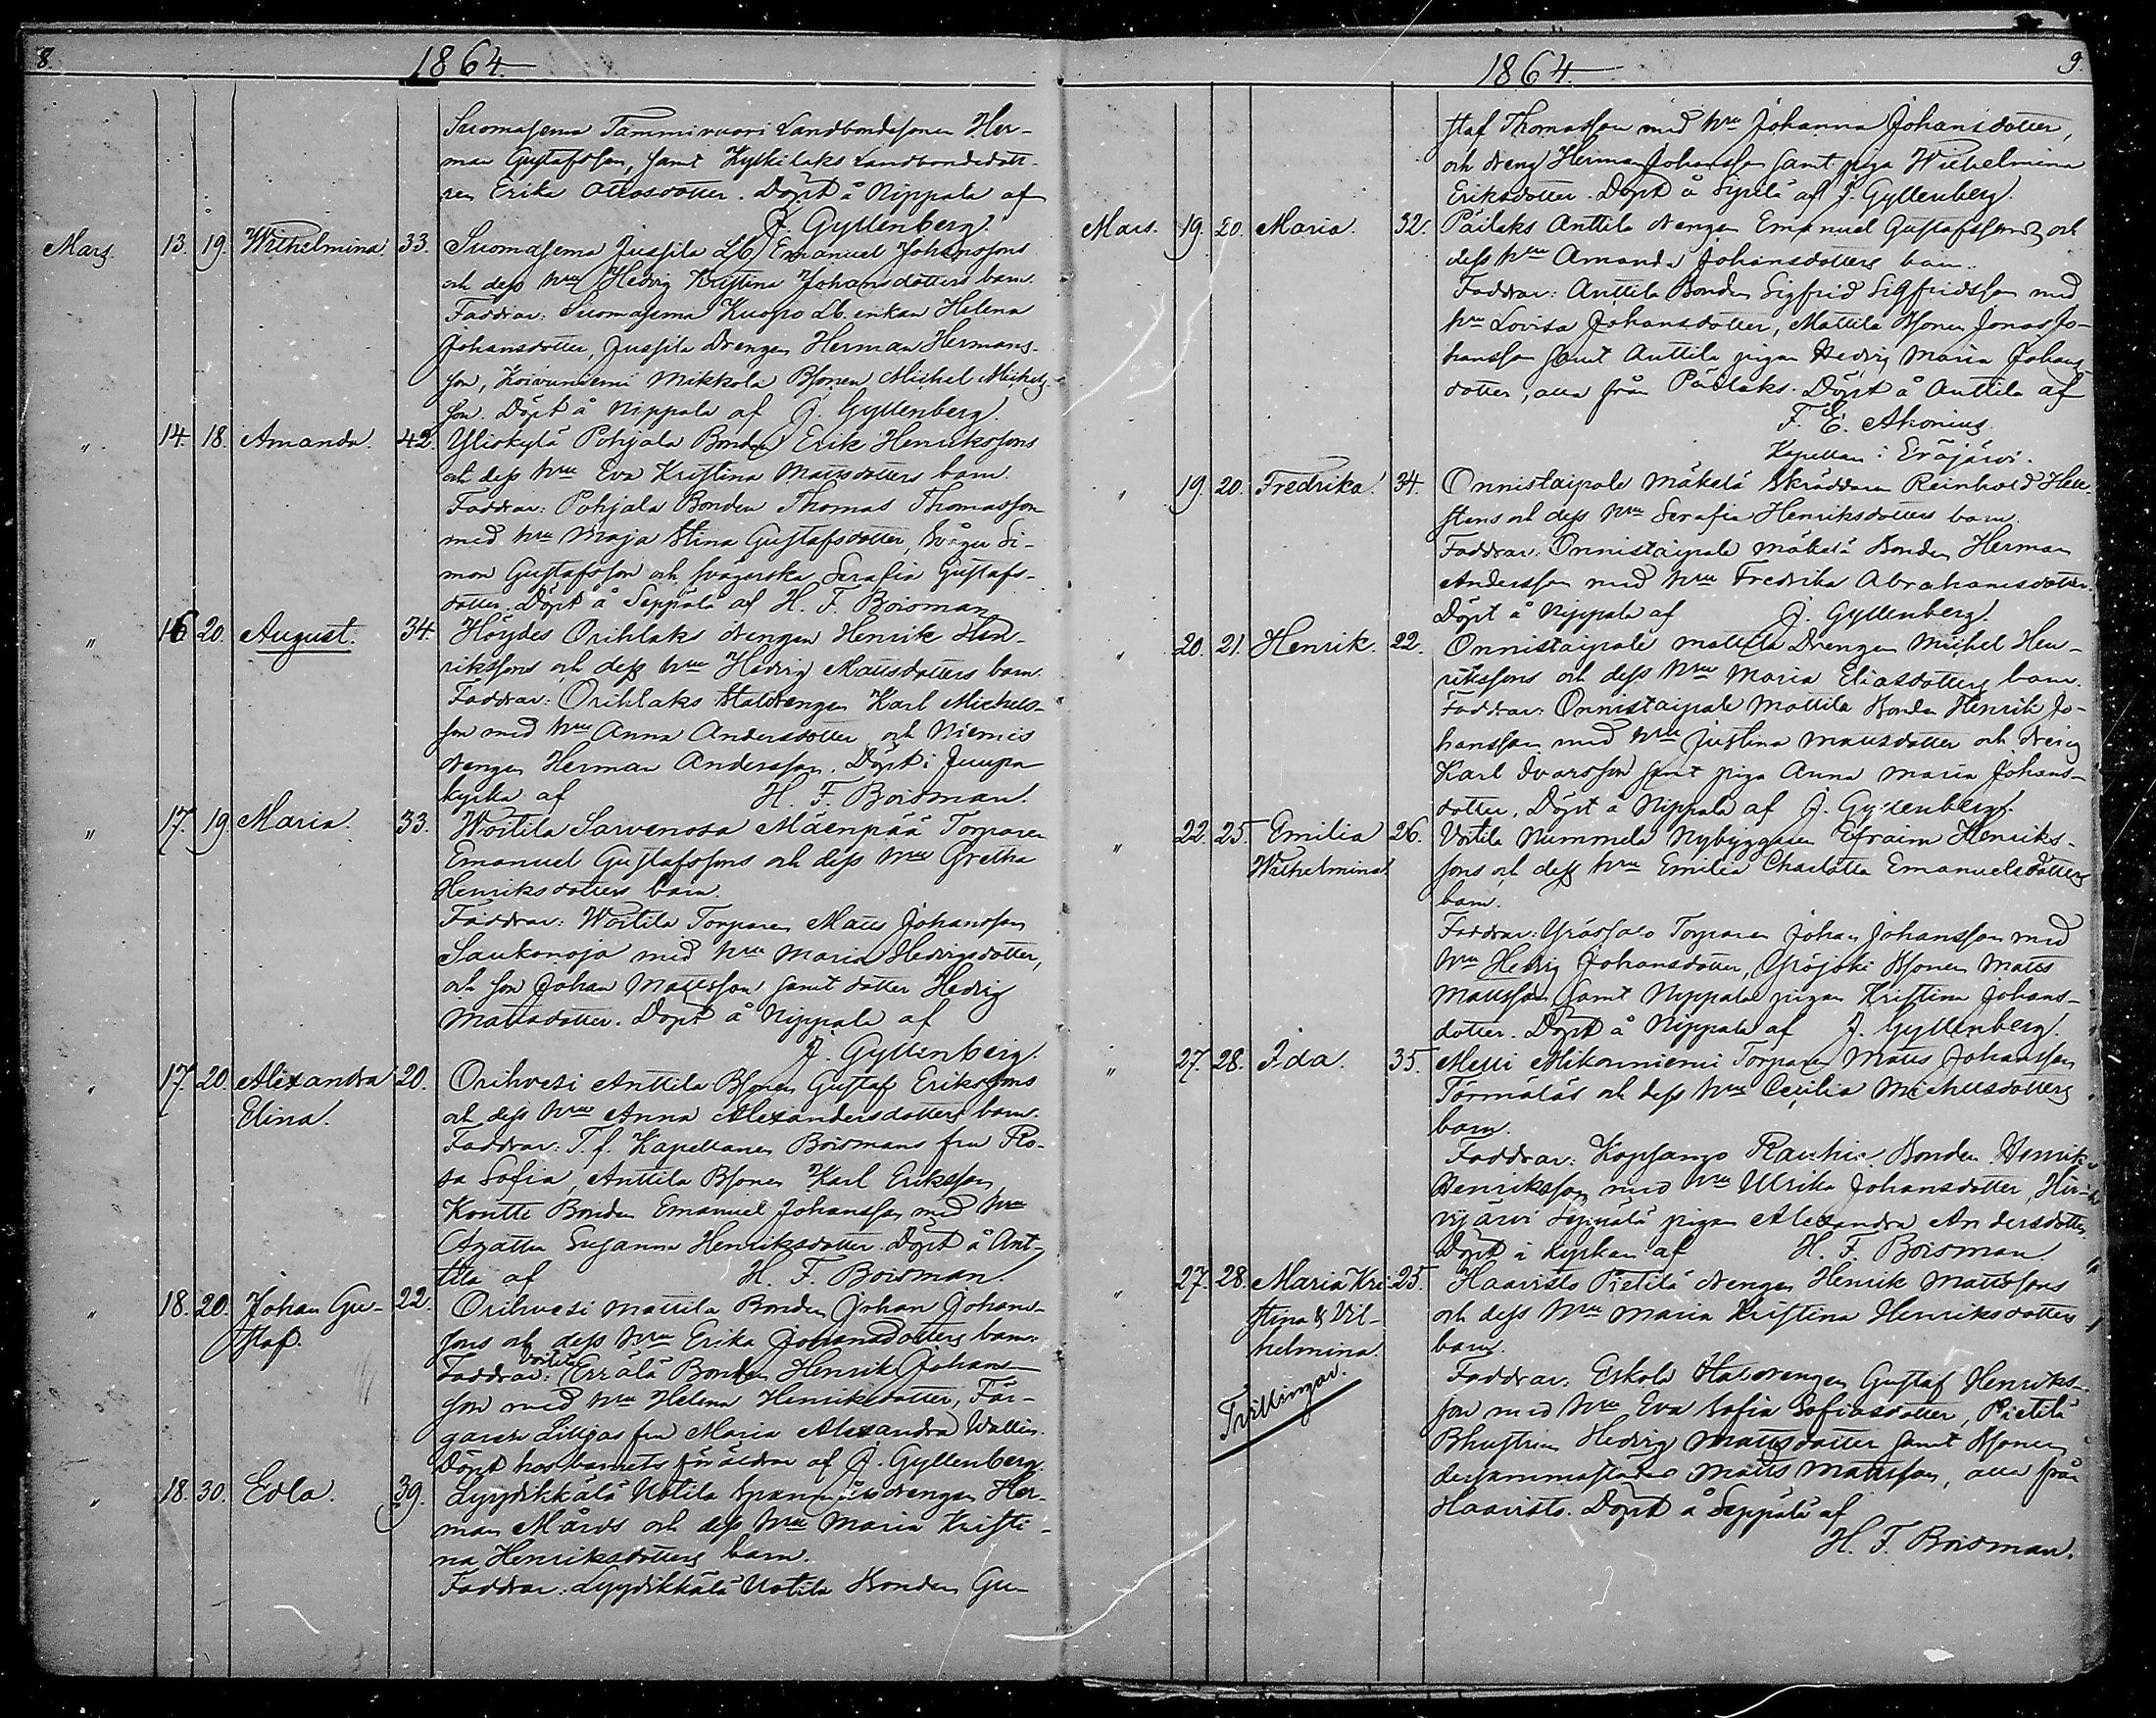 8.
1864.
Suomasema Tammivuori Landbondesonen Her-
man Gustafsson, samt Kyskilaks Landbondedott-
ren Erika Ottosdotter. Döpt å Nippala af
J. Gyllenberg.
Mars. 13. 19. Wilhelmina. 33. Suomasema Jussila Lb. Emanuel Johanssons
och dess hru Hedvig Kristina Johansdotters barn.
Faddrar: Suomasema Kuopo Lb. enkan Helena
Johansdotter, Jussila Drengen Herman Hermans-
son, Koivuniemi Mikkola Bsonen Michel Michels-
son. Döpt å Nippala af J. Gyllenberg.
" 14. 18. Amanda. 42. Yliskylä Pohjala Bonden Erik Henrikssons
och dess hru Eva Kristina Mattsdotters barn.
Faddrar: Pohjala Bonden Thomas Thomasson
med hru Maja Stina Gustafsdotter, Svåger Si-
mon Gustafsson och svägerska Serafia Gustafs-
dotter. Döpt å Seppälä af H. F. Boisman.
" 16 20. August. 34. Höydes Orihlaks drengen Henrik Hen-
rikssons och dess hru Hedvig Mattsdotters barn.
Faddrar: Orihlaks Staldrengen Karl Michels-
son med hru Anna Andersdotter och Niemis
drengen Herman Andersson. Döpt i Juupa
kyrka af H. F. Boisman.
" 17. 19. Maria. 33. Woitila Sarvenosa Mäenpää Torparen
Emanuel Gustafssons och dess hru Gretha
Henriksdotters barn.
Faddrar: Woitila Torparen Matts Johansson
Saukonoja med hru Maria Hedvigsdotter,
och son Johan Mattsson samt dotter Hedvig
Mattsdotter. Döpt å Nippala af
J. Gyllenberg.
" 17. 20. Alexandra 20. Orihvesi Anttila Bsonen Gustaf Erikssons
Elina. och dess hru Anna Alexandersdotters barn.
Faddrar: T. f. Kapellanen Boismans fru Ro-
sa Sofia, Anttila Bsonen Karl Eriksson
Kontte Bonden Emanuel Johansson med hru
Agatha Susanna Henriksdotter. Döpt å Ant-
tila af H. F. Boisman.
" 18. 20. Johan Gu- 22. Orihvesi Mattila Bonden Johan Johans-
staf. sons och dess hru Erika Johansdotters barn.
Voitila
Faddrar: Errälä Bonden Henrik Johans-
son med hru Helena Henriksdotter, Fär-
garen Liljas fru Maria Alexandra Wallin.
Döpt hos barnets föräldrar af J. Gyllenberg.
" 18. 30. Edla. 39. Lyydikkälä Uotila drengen Her-
man Mårds och dess hru Maria Kristi-
na Henriksdotters barn.
Faddrar: Lyydikkälä Uotila Bonden Gu-
9.
1864.
staf Thomasson med hru Johanna Johansdotter,
och dreng Herman Johansson samt piga Wilhelmina
Eriksdotter. Döpt å Syrilä af J. Gyllenberg.
Mars. 19. 20. Maria. 32. Päilaks Anttila drengen Emanuel Gustafssons och
dess hru Amanda Johansdotters barn.
Faddrar: Anttila Bonden Sigfrid Sigfridsson med
hru Lovisa Johansdotter, Mattila Bsonen Jonas Jo-
hansson samt Anttila pigan Hedvig Maria Johans-
dotter, alla från Päilaks. Döpt å Anttila af
F. E. Ahonius
Kapellan i Eräjärvi.
" 19. 20. Fredrika. 34. Onnistaipale Mäkelä Skräddaren Reinhold Hell-
stens och dess hru Serafia Henriksdotters barn.
Faddrar: Onnistaipale Mäkelä Bonden Herman
Andersson med hru Fredrika Abrahamsdotter.
Döpt å Nippala af J. Gyllenberg.
" 20. 21. Henrik. 22. Onnistaipale Mattila Drengen Michel Hen-
rikssons och dess hru Maria Eliasdotters barn.
Faddrar: Onnistaipale Mattila Bonden Henrik Jo-
hansson med hru Justina Mattsdotter och dreng
Karl Ivarsson samt piga Anna Maria Johans-
dotter. Döpt å Nippala af J. Gyllenberg.
" 22. 25. Emilia 26. Voitila Nummela Nybyggaren Efraim Henriks-
Wilhelmina sons och dess hru Emilia Charlotta Emanuelsdotters
barn.
Faddrar: Torparen Johan Johansson med
hru Hedvig Johansdotter, Bsonen Matts
Mattsson samt Nippala pigan Kristina Johans-
dotter. Döpt å Nippala af J. Gyllenberg.
" 27. 28. Ida. 35. Torparen Matts Johansson
Törmäläs och dess hru Cecilia Michelsdotters
barn.
Faddrar: Kopsamo Rauhu Bonden Henrik
Henriksson med hru Ulrika Johansdotter, Hir-
vijärvi Seppälä pigan Alexandra Andersdotter.
Döpt i kyrkan af H. F. Boisman
" 27. 28. Maria Kri- 25. Haavisto Pietilä drengen Henrik Mattssons
stina & Vil- och dess hru Maria Kristina Henriksdotters
helmina. barn.
Tvillingar. Faddrar: Eskola Haldrengen Gustaf Henriks-
son med hru Eva Sofia Sofiasdotter, Pietilä
Bhustrun Hedvig Mattsdotter samt Bsonen
dersammastädes Matts Mattsson, alla från
Haavisto. Döpt å Seppälä af
H. F. Boisman.